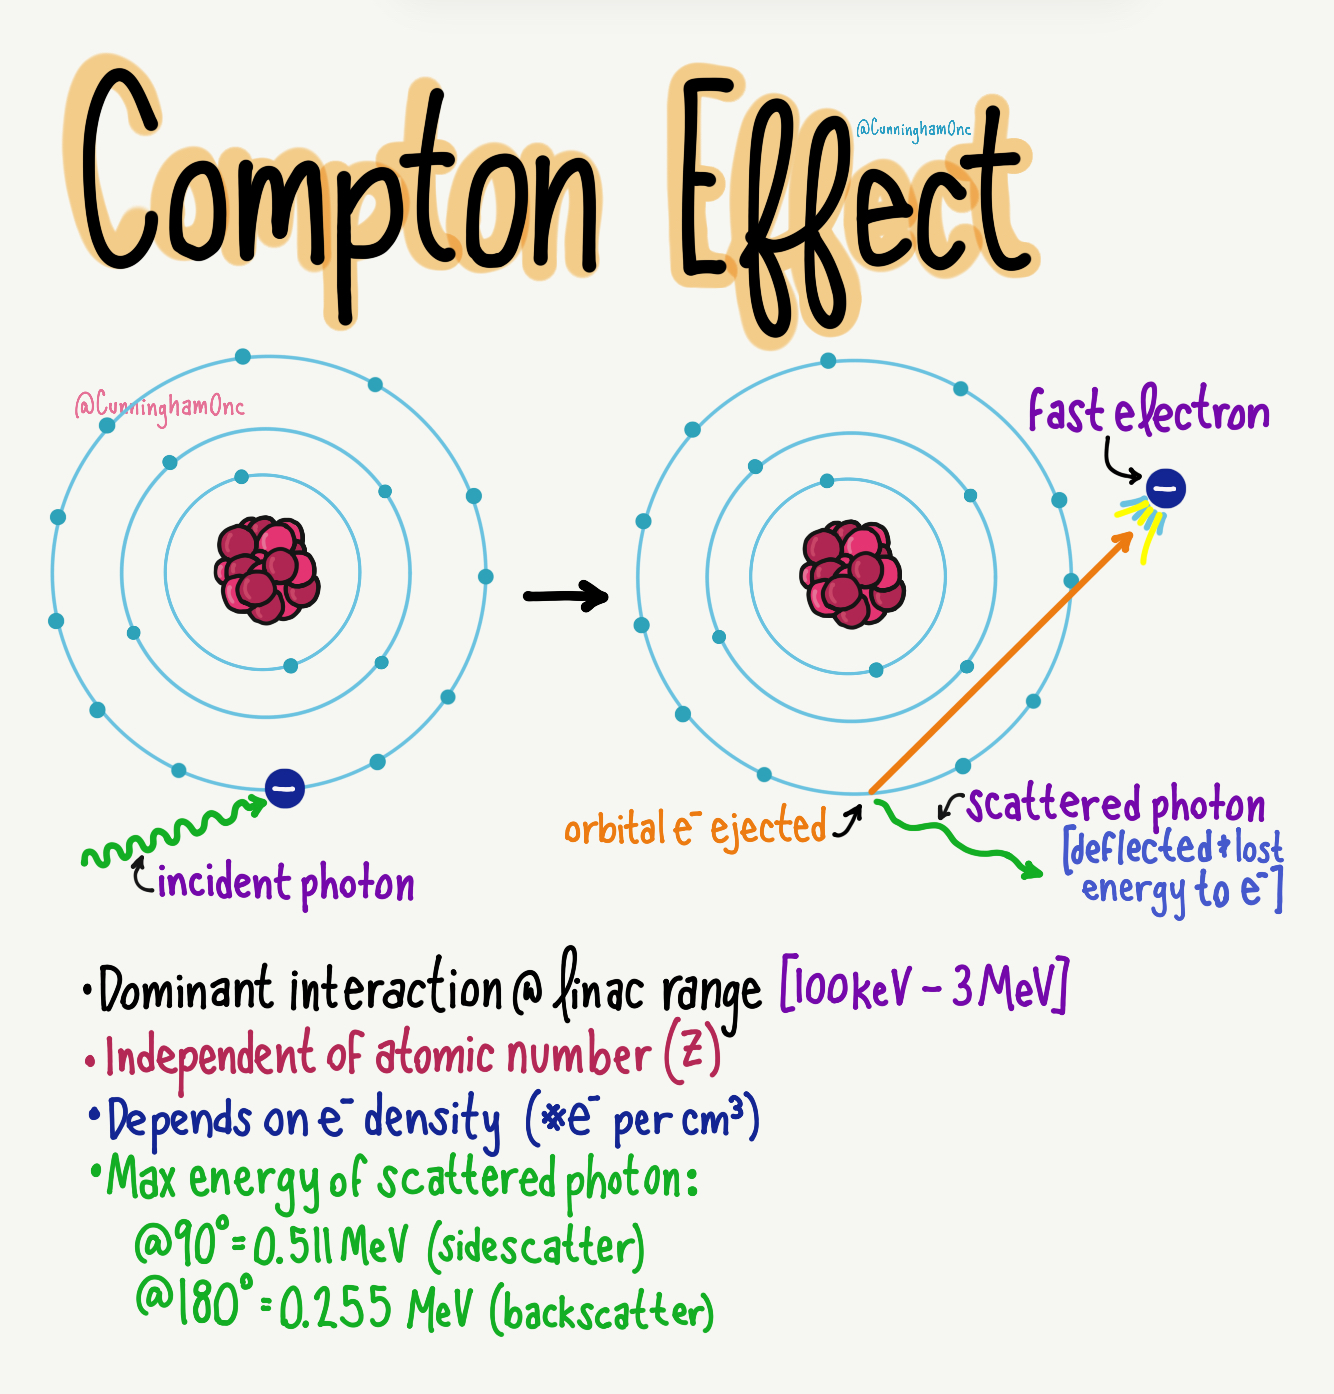 Compton Effect
@CunninghamOnc
@CunninghamOnc
fast electron
orbital e⁻ ejected
scattered photon
[deflected & lost
energy to e⁻]
incident photon
• Dominant interaction @ linac range [100keV - 3MeV]
• Independent of atomic number (Z)
• Depends on e⁻ density (#e⁻ per cm³)
• Max energy of scattered photon:
@90° = 0.511 MeV (sidescatter)
@180° = 0.255 MeV (backscatter)